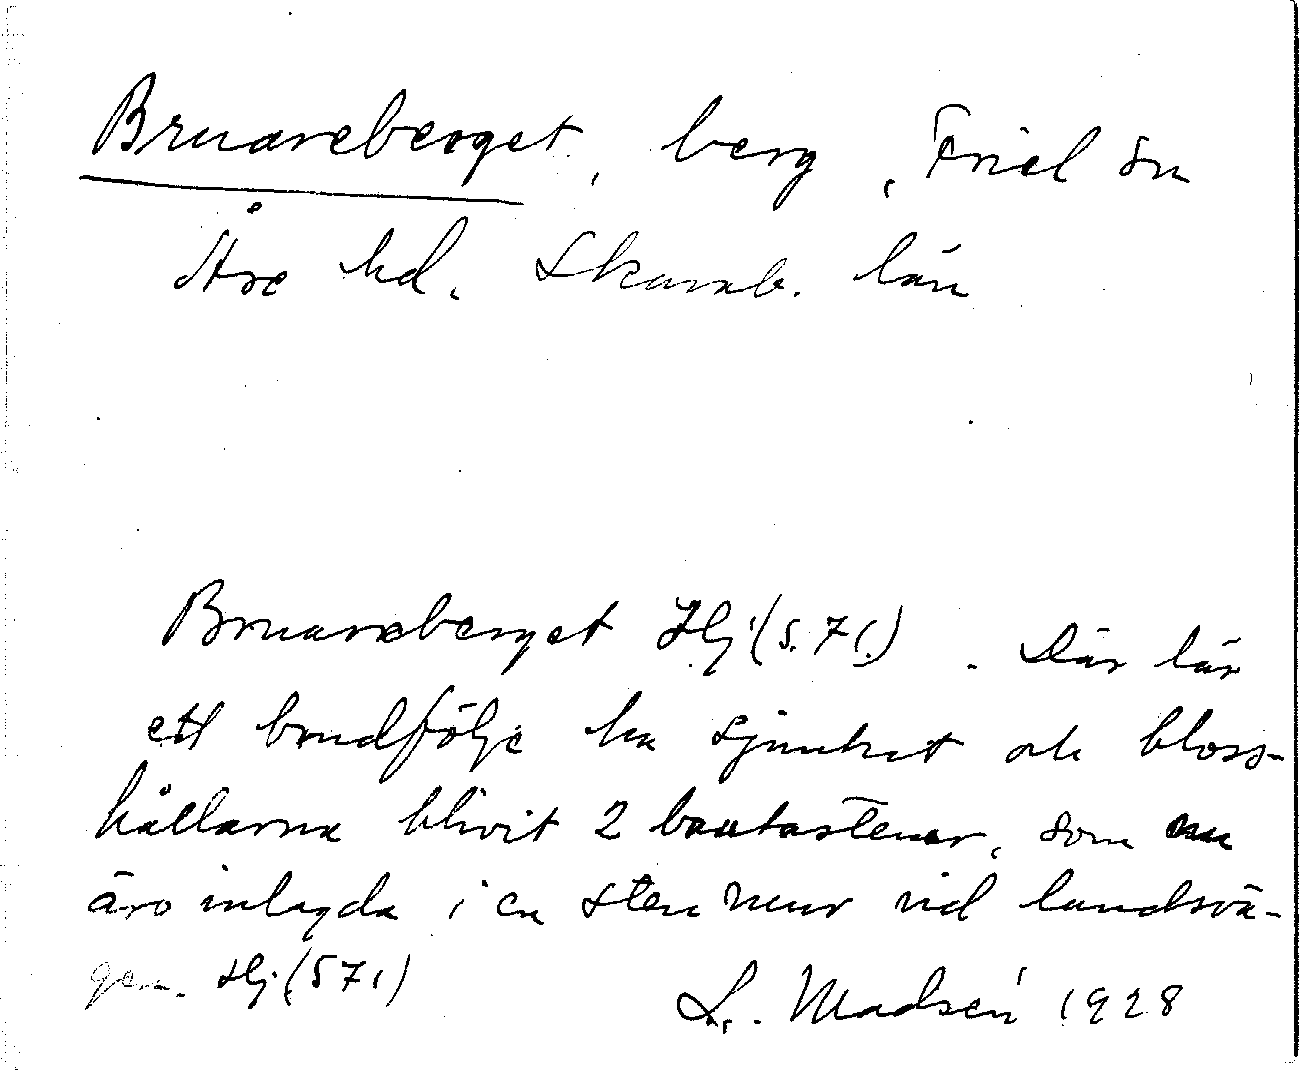 Bruareberget, berg, Friel sn
Åse hd. Skarab. län
Bruareberget Hlj (s. 71.). Där lär
ett brudfölje ha sjunkit och bloss-
hållarna blivit 2 bautastenar, som nu
äro inlagda i en stenmur vid landsvä-
gen. Hlj (s 71)
L. Madsén 1928